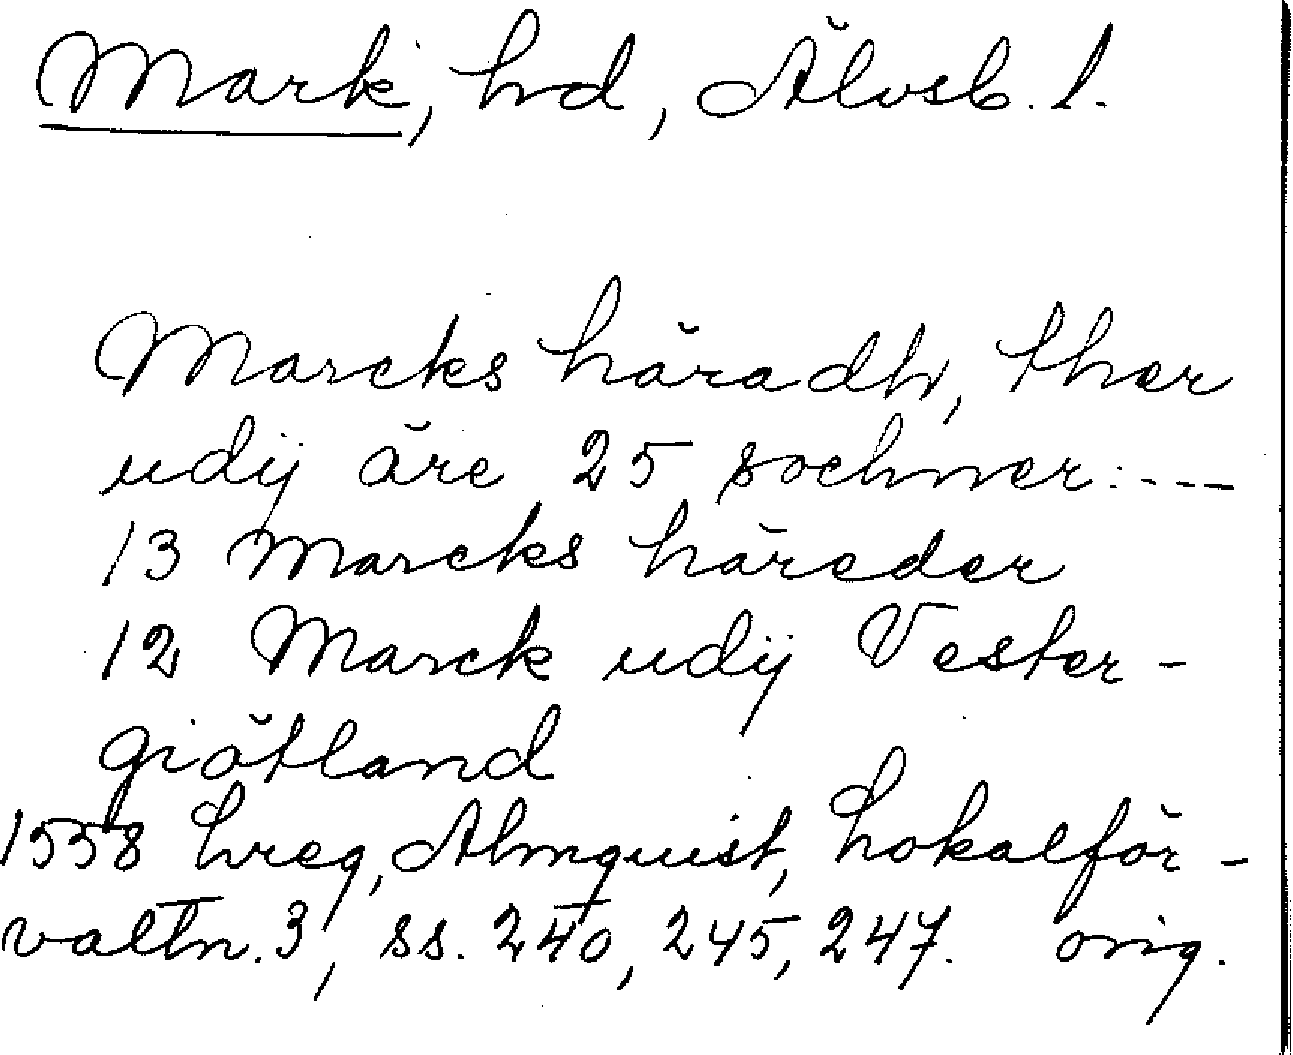 Mark, hd, Älvsb. l.
Marcks häradh, ther
udij äre 25 sochner: ---
13 Marcks häreder
12 Marck udij Vester-
giötland
1558 hreg, Almquist, Lokalför-
valtn. 3, ss. 240, 245, 247. orig.